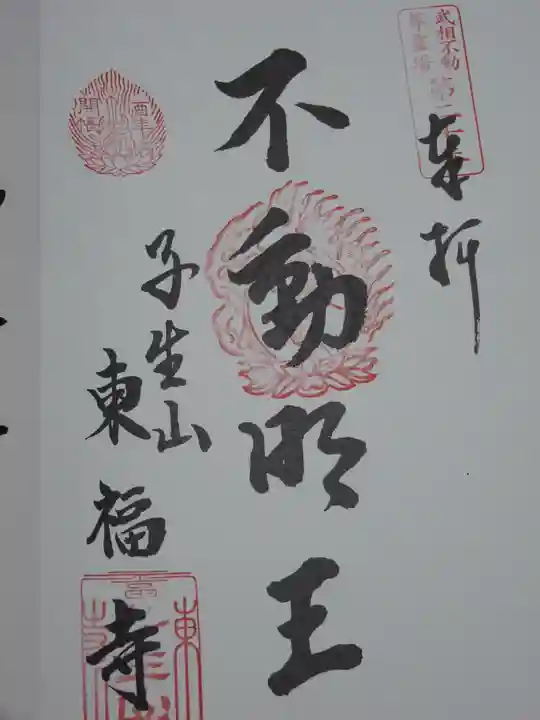 武相不動
尊霊場
第二
奉拝
不動明王
酉年
開帳
子生山
東福寺
東